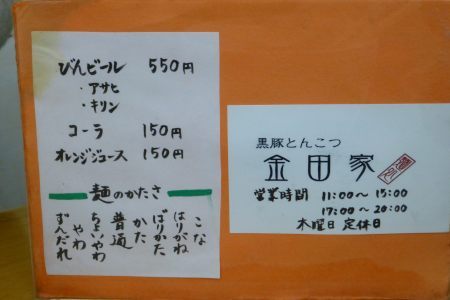 びんビール 550円
・アサヒ
・キリン
コーラ 150円
オレンジジュース 150円
麺のかたさ
こな
はりがね
ばりかた
かた
普通
ちょいやわ
やわ
ずんだれ
黒豚とんこつ
金田家
営業時間 11:00〜15:00
17:00〜20:00
木曜日 定休日